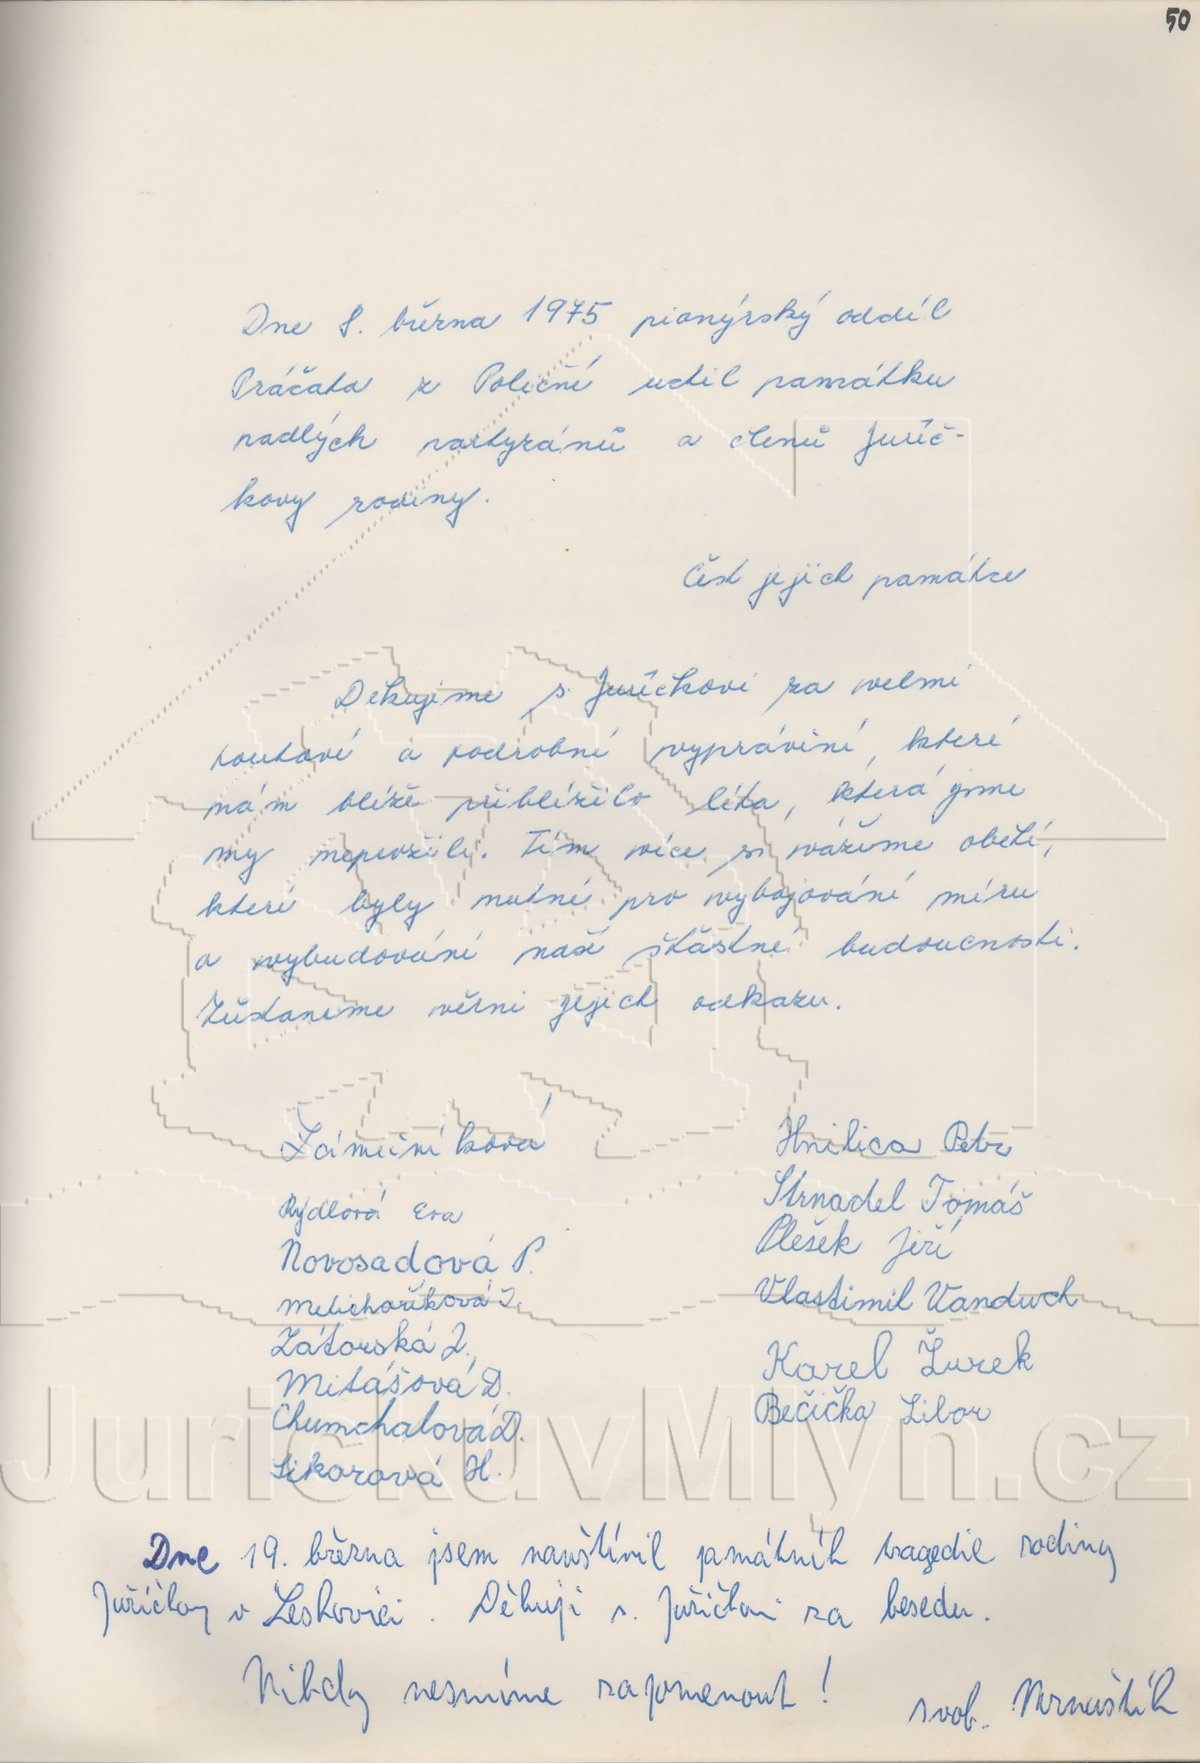 50
Dne 8. března 1975 pionýrský oddíl
Práčata z Poličné uctil památku
padlých partyzánů a členů Juříč-
kovy rodiny.
Čest jejich památce
Děkujeme s. Juříčkovi za velmi
poutavé a podrobné vyprávění, které
nám blíže přiblížilo léta, která jsme
my neprožili. Tím více si vážíme obětí,
které byly nutné pro vybojování míru
a vybudování naší šťastné budoucnosti.
Zůstaneme věrni jejich odkazu.
Zámečníková
Rýdlová Eva
Novosadová P.
Melichaříková J.
Zátorská J.
Mitášová D.
Chumchalová D.
Sikorová H.
Hnilica Petr
Strnadel Tomáš
Plešek Jiří
Vlastimil Vanduch
Karel Žurek
Bečička Libor
JurickuvMlyn.cz
Dne 19. března jsem navštívil památník tragedie rodiny
Juříčkovy v Leskovci. Děkuji s. Juříčkovi za besedu.
Nikdy nesmíme zapomenout!
svob.